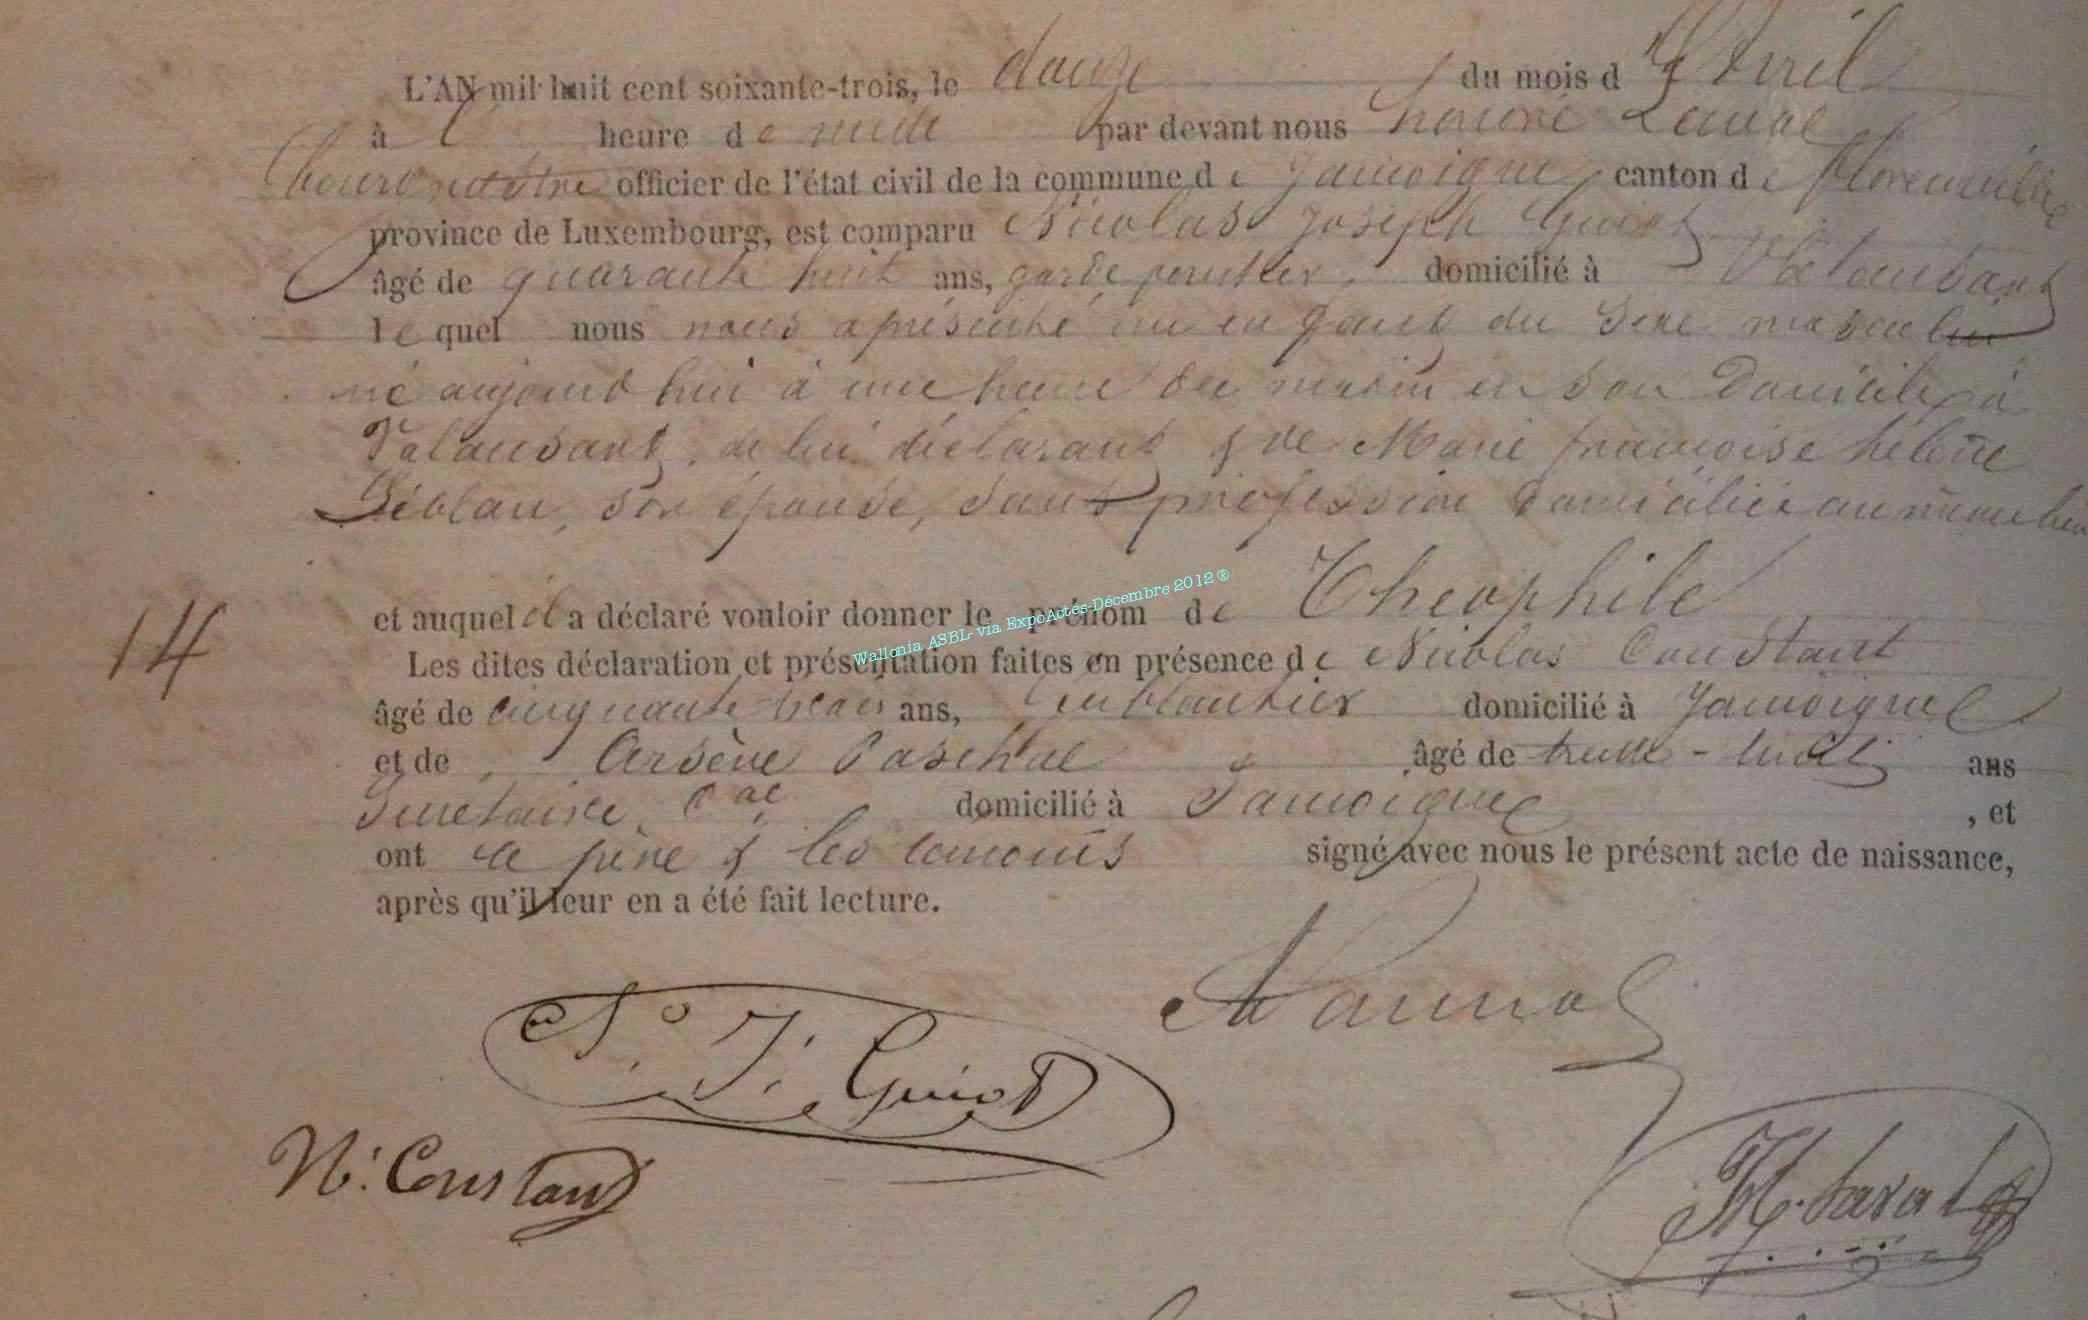 L'AN mil huit cent soixante-trois, le douze du mois d'Avril
à heure de par devant nous honoré Laval
bourgmestre officier de l'état civil de la commune de Jamoigne canton de Florenville
province de Luxembourg, est comparu Nicolas Joseph Guiot
âgé de quarante huit ans, garde forestier, domicilié à Valansart
lequel nous nous a présenté un enfant du sexe masculin
né aujourd'hui à une heure du matin en son domicile à
Valansart, de lui déclarant & de Marie françoise hélène
son épouse, sans profession domiciliée au même lieu
14
et auquel il a déclaré vouloir donner le prénom de Théophile
Les dites déclaration et présentation faites en présence de Nicolas Constant
âgé de cinquante trois ans, ferblantier domicilié à Jamoigne
et de Arsène Paschal âgé de trente-huit ans
Secrétaire Cal domicilié à Jamoigne, et
ont le père & les témoins signé avec nous le présent acte de naissance,
après qu'il leur en a été fait lecture.
N. J. Guiot
N. Constant
H. Laval
Wallonia ASBL via ExpoActes-Décembre 2012 ®